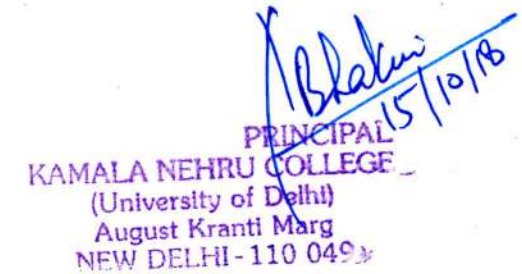 Bhakuni
15/10/18
PRINCIPAL
KAMALA NEHRU COLLEGE
(University of Delhi)
August Kranti Marg
NEW DELHI - 110 049